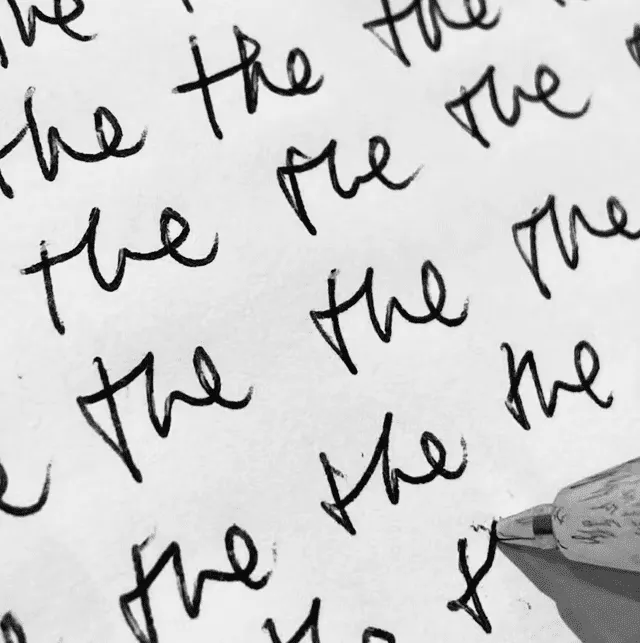 the
the the the
the the the
the the the
the the the
t